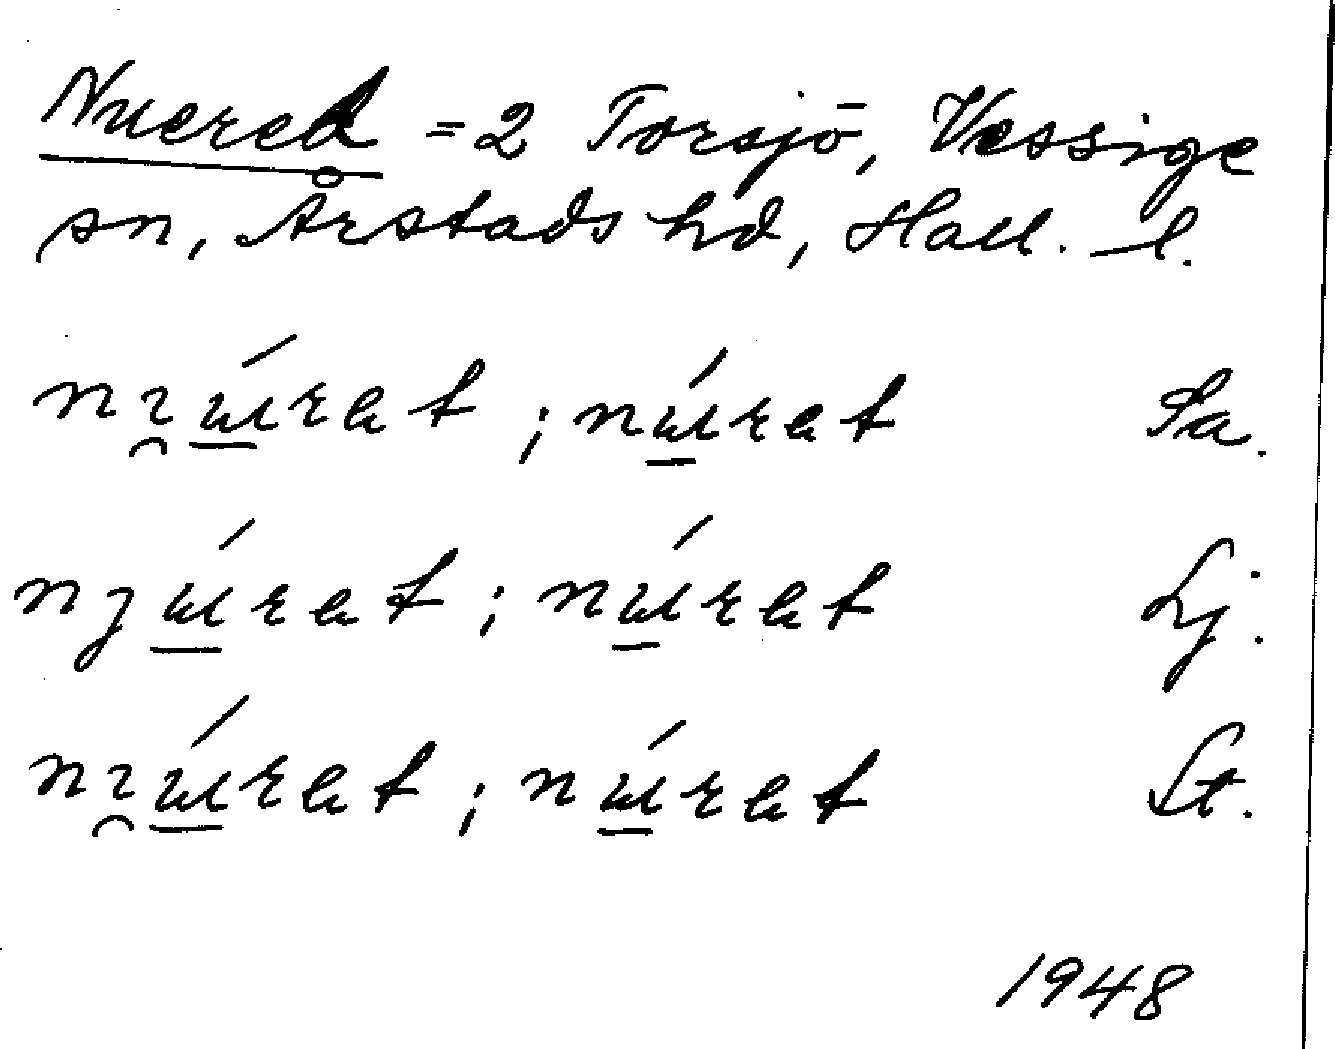 Nuered = 2 Torsjö, Vessige
sn, Årstads hd, Hall. l.
nıúrat ; núrat Sa.
njúrat ; núrat Lj.
nıúrat ; núrat St.
1948